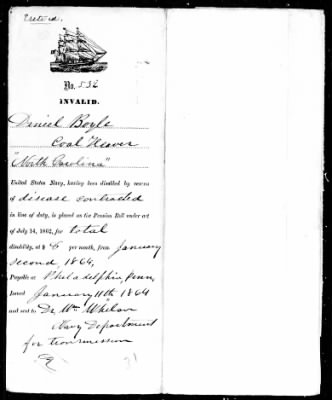 No. 532
INVALID.
Daniel Boyle
Coal Heaver
"North Carolina"
United States Navy, having been disabled by reason
of disease contracted
in line of duty, is placed on the Pension Roll under act
of July 14, 1862, for total
disability, at $ 6 per month, from January
second, 1864,
Payable at Philadelphia, Penn.
Issued January 11th 1864
and sent to Dr. Wm Whelan
Navy Department
for transmission